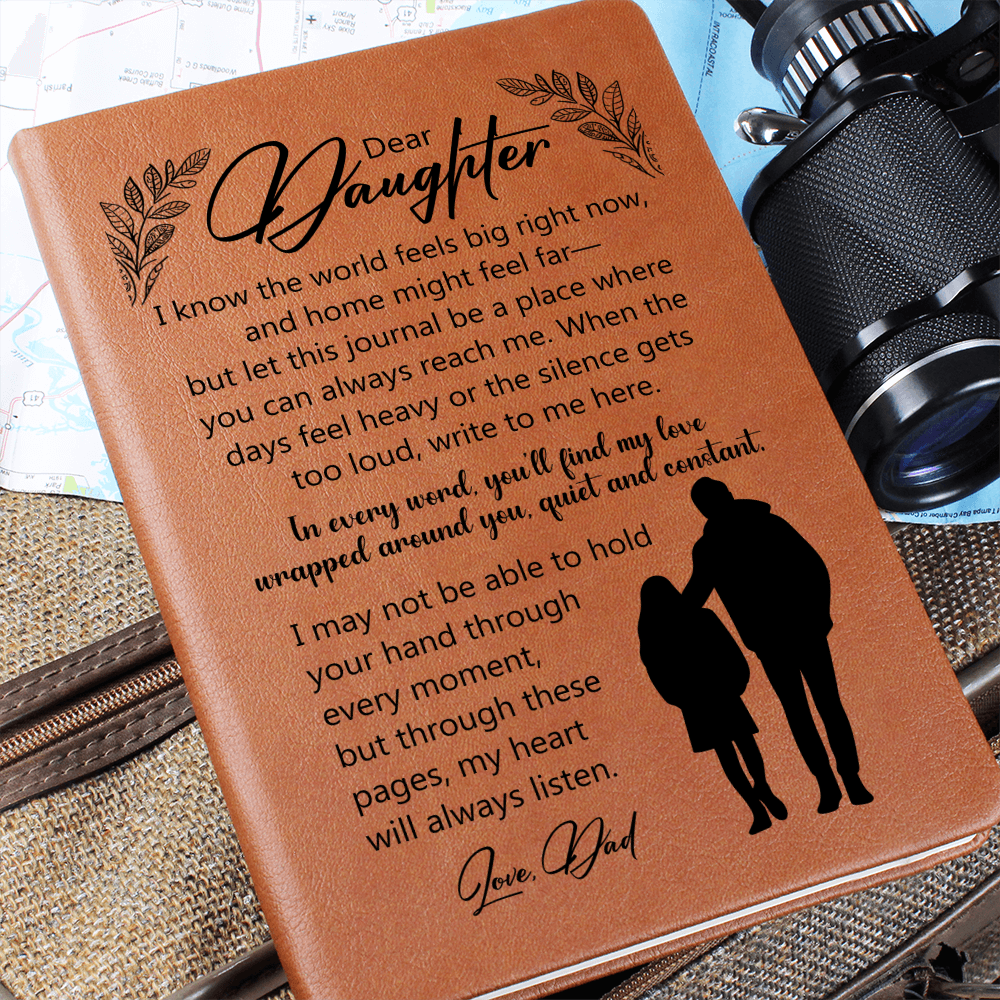 Dear
Daughter
I know the world feels big right now,
and home might feel far—
but let this journal be a place where
you can always reach me. When the
days feel heavy or the silence gets
too loud, write to me here.
In every word, you'll find my love
wrapped around you, quiet and constant.
I may not be able to hold
your hand through
every moment,
but through these
pages, my heart
will always listen.
Love, Dad
Parrish
Woodlands G C
Buffalo Creek
Golf Course
Airport
Dixie Sky
Ranch
41
41
INTRACOASTAL
Park
Tampa Bay Chamber of